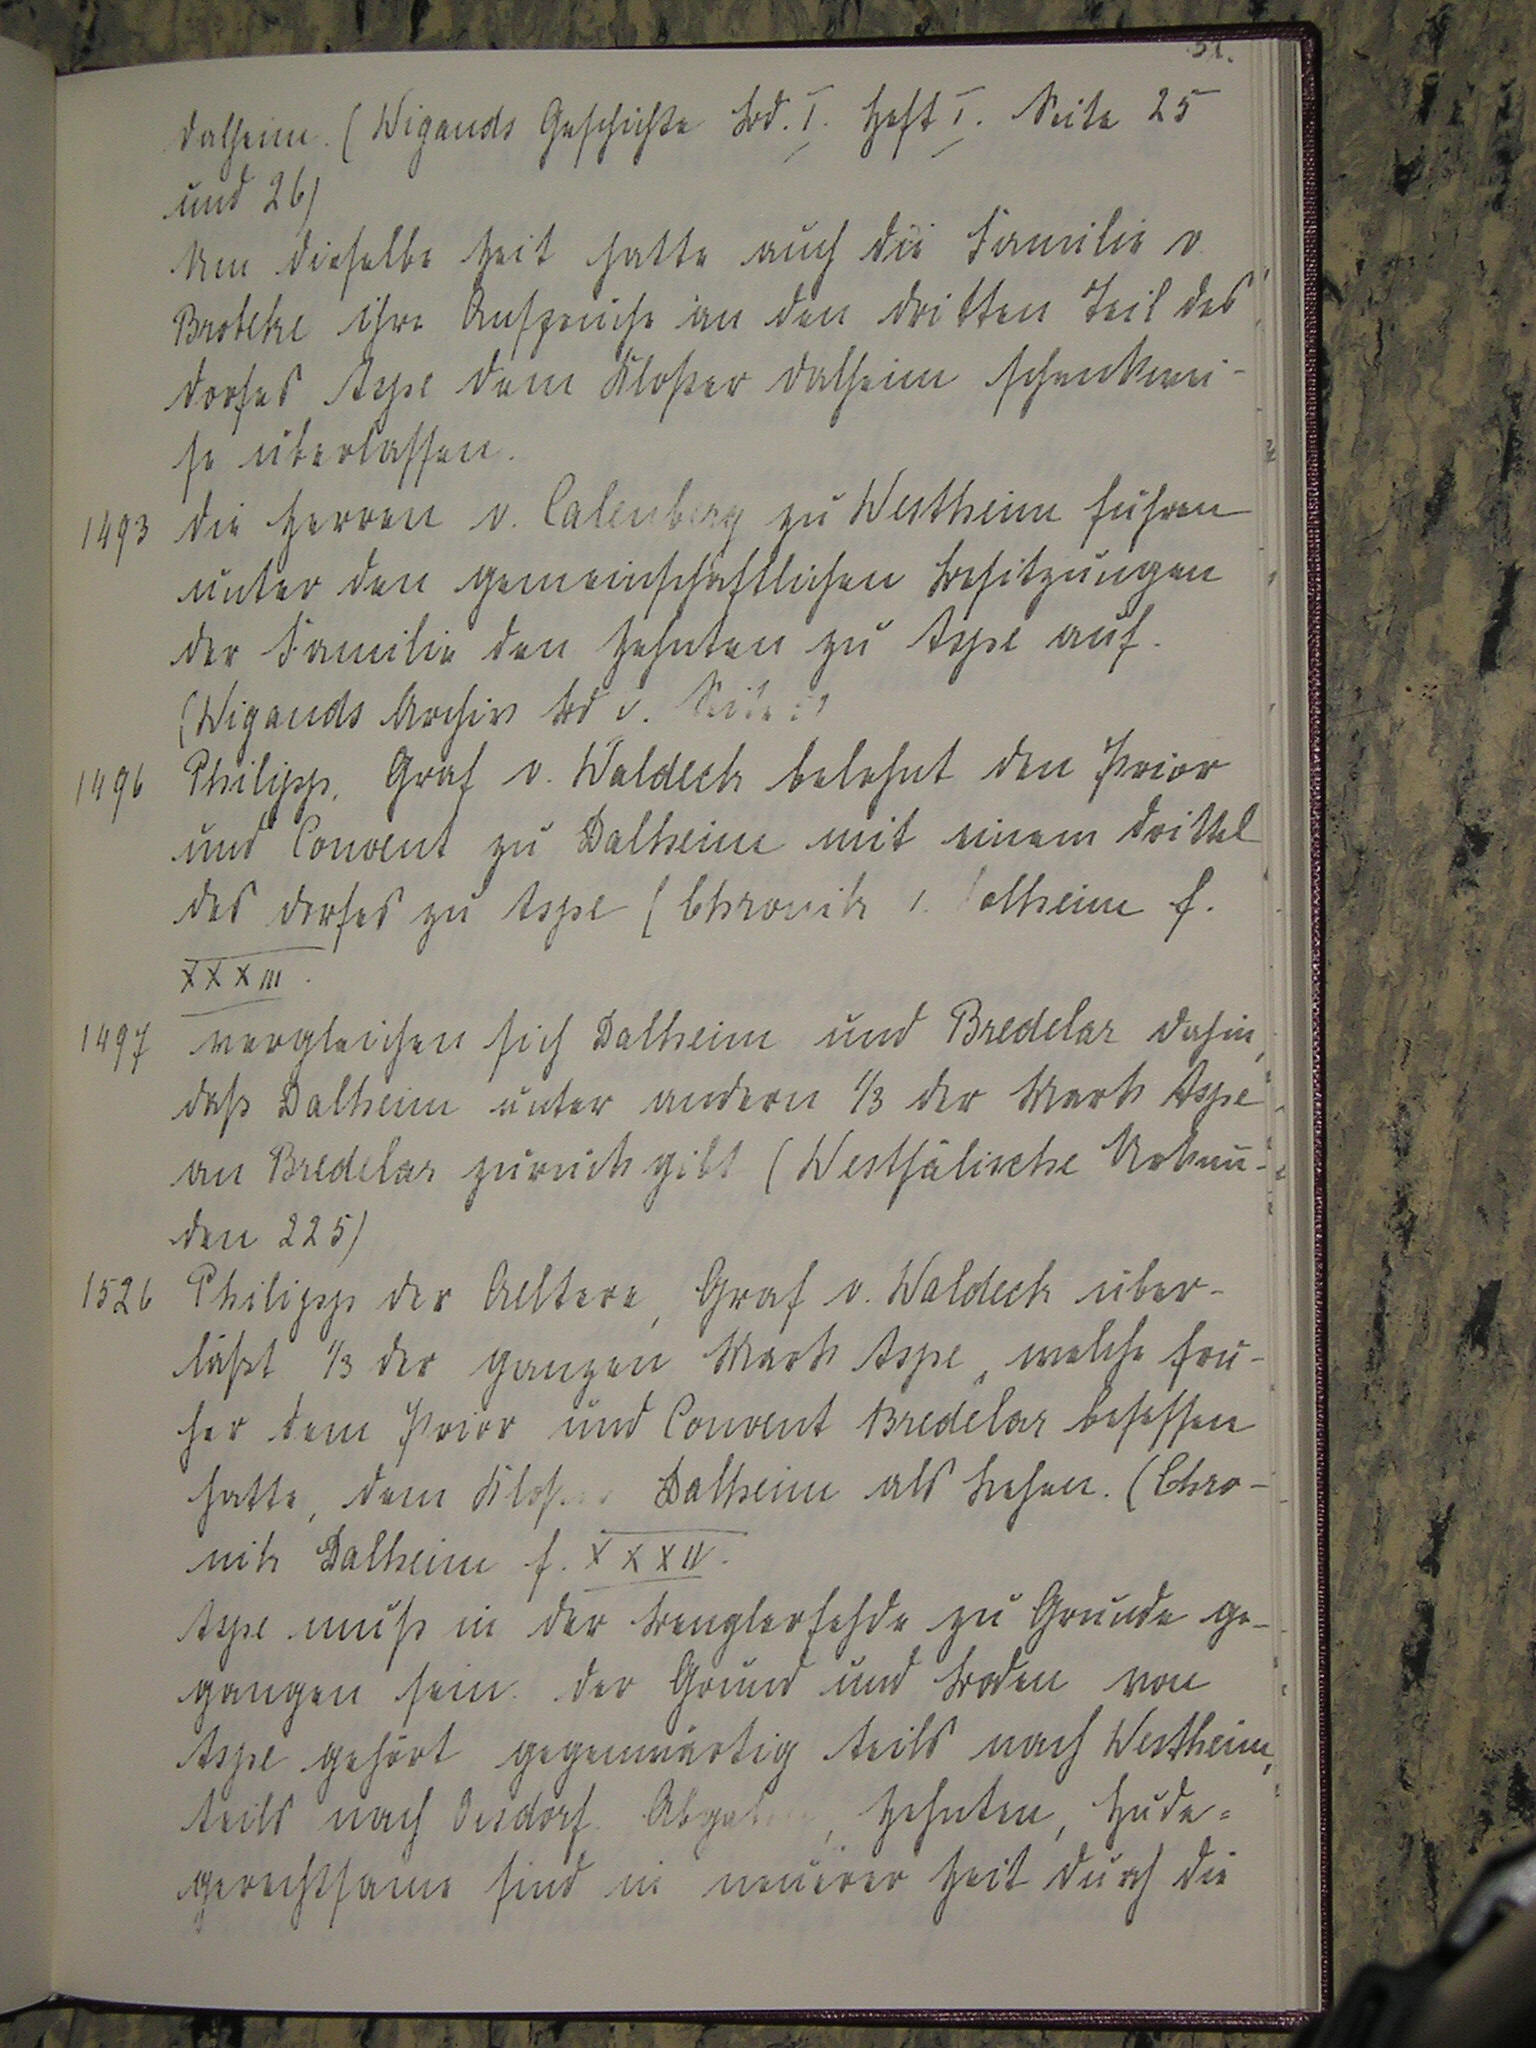 51.
Dalheim. (Wigands Geschichte Bd. I. Heft I. Seite 25
und 26)
Um dieselbe Zeit hatte auch die Familie v.
Brobeke ihre Ansprüche an den dritten Teil des
Dorfes Aspe dem Kloster Dalheim schenkwei-
se überlassen.
1493 Die Herren v. Calenberg zu Westheim führen
unter den gemeinschaftlichen Besitzungen
der Familie den Zehnten zu Aspe auf.
(Wigands Archiv Bd v. Seite
1496 Philipp, Graf v. Waldeck belehnt den Prior
und Convent zu Dalheim mit einem Drittel
des Dorfes zu Aspe (Chronik v. Dalheim f.
XXXIII.
1497 vergleichen sich Dalheim und Bredelar dahin,
daß Dalheim unter andern 1/3 der Mark Aspe
an Bredelar zurück gibt (Westfälische Urkun-
den 225)
1526 Philipp der Aeltere, Graf v. Waldeck über-
läßt 1/3 der ganzen Mark Aspe, welche frü-
her dem Prior und Convent Bredelar besessen
hatte, dem Kloster Dalheim als Lehen. (Chro-
nik Dalheim f. XXXIV.
Aspe muß in der Benglerfehde zu Grunde ge-
gangen sein. Der Grund und Boden von
Aspe gehört gegenwärtig teils nach Westheim,
teils nach Oesdorf. Abgaben, Zehnten, Hude=
gerechtsame sind in neuerer Zeit durch die